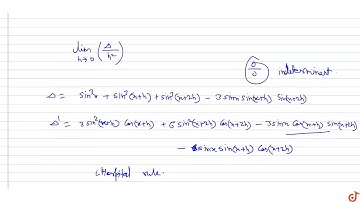 lim h→0 (Δ/h²)
0/0 indeterminant.
Δ = sin³x + sin³(x+h) + sin³(x+2h) - 3 sinx sin(x+h) sin(x+2h)
Δ' = 3 sin²(x+h) cos(x+h) + 6 sin²(x+2h) cos(x+2h) - 3 sinx cos(x+h) sin(x+2h)
- 6 sinx sin(x+h) cos(x+2h)
rule.